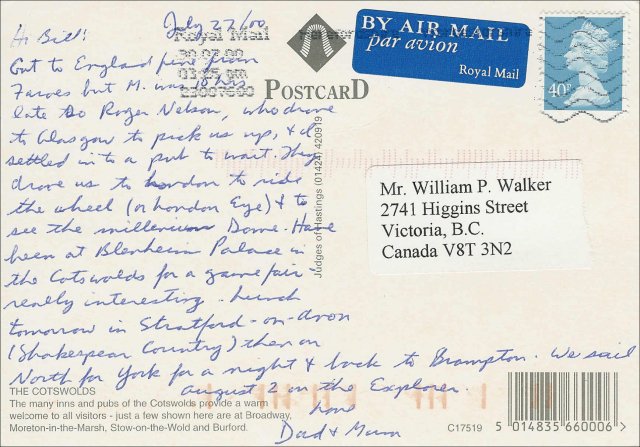 July 27/00
Hi Bill!
Got to England fine from
Faroes but M. was 18 hrs
late so Roger Nelson, who drove
to Glasgow to pick us up, & I
settled in to a pub to wait. They
drove us to London to ride
the wheel (or London Eye) & to
see the millenium Dome. Have
been at Blenheim Palace in
the Cotswolds for a game fair -
really interesting. Lunch
tomorrow in Stratford-on-Avon
(Shakespear Country) then on
North for York for a night & back to Brampton. We sail
august 2 on the Explorer.
Love
Dad & Mum
THE COTSWOLDS
The many inns and pubs of the Cotswolds provide a warm
welcome to all visitors - just a few shown here are at Broadway,
Moreton-in-the-Marsh, Stow-on-the-Wold and Burford.
Royal Mail
POSTCARD
Judges of Hastings (01424) 420919
BY AIR MAIL
par avion
Royal Mail
40P
Mr. William P. Walker
2741 Higgins Street
Victoria, B.C.
Canada V8T 3N2
C17519
5 014835 660006